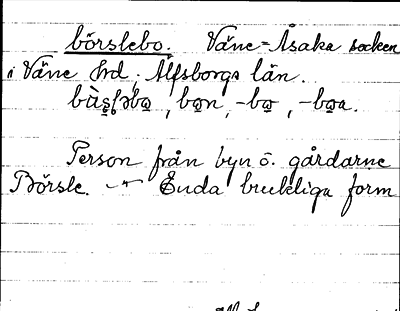 börslebo. Väne-Åsaka socken
i Väne hrd, Älfsborgs län.
Person från byn o. gårdarne
Börsle. — Enda brukliga form